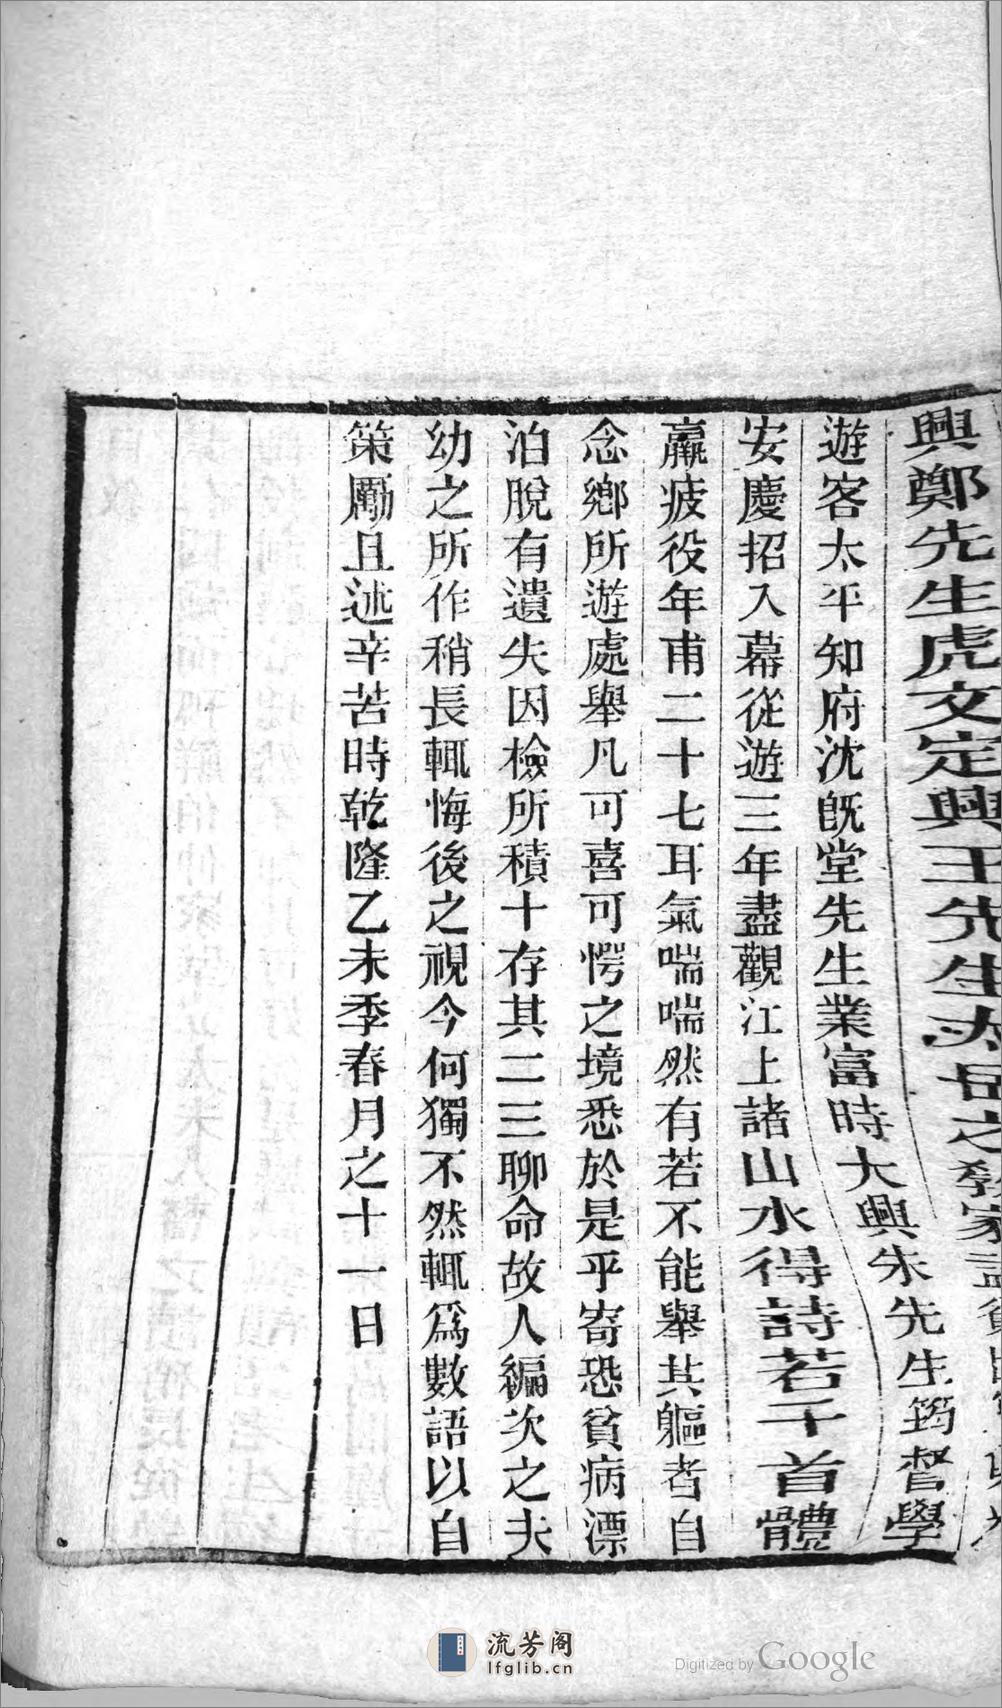 興鄭先生虎文定興王先生太岳之教家益貧
遊客太平知府沈旣堂先生業富時大興朱先生筠督學
安慶招入幕從遊三年盡觀江上諸山水得詩若干首體
羸疲役年甫二十七耳氣喘喘然有若不能舉其軀者自
念鄉所遊處舉凡可喜可愕之境悉於是乎寄恐貧病漂
泊脫有遺失因檢所積十存其二三聊命故人編次之夫
幼之所作稍長輒悔後之視今何獨不然輒爲數語以自
策勵且述辛苦時乾隆乙未季春月之十一日
流芳阁
lfglib.cn
Digitized by Google